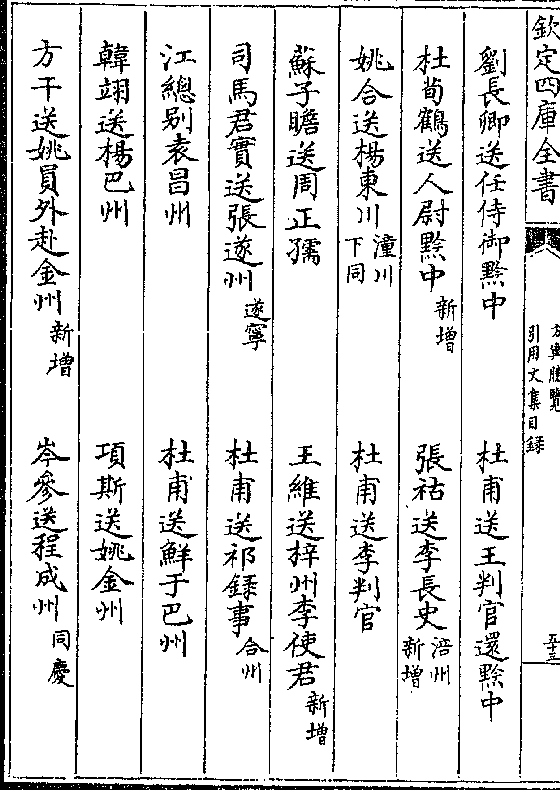 欽定四庫全書
方輿勝覽
引用文集目録
五十三
劉長卿送任侍御黔中 杜甫送王判官還黔中
杜荀鶴送人尉黔中新增 張祜送李長史涪州新增
姚合送楊東川潼川下同 杜甫送李判官
蘇子瞻送周正孺 王維送梓州李使君新增
司馬君實送張遂州遂寧 杜甫送祁録事合州
江總别袁昌州 杜甫送鮮于巴州
韓翃送楊巴州 項斯送姚金州
方干送姚員外赴金州新增 岑參送程成州同慶